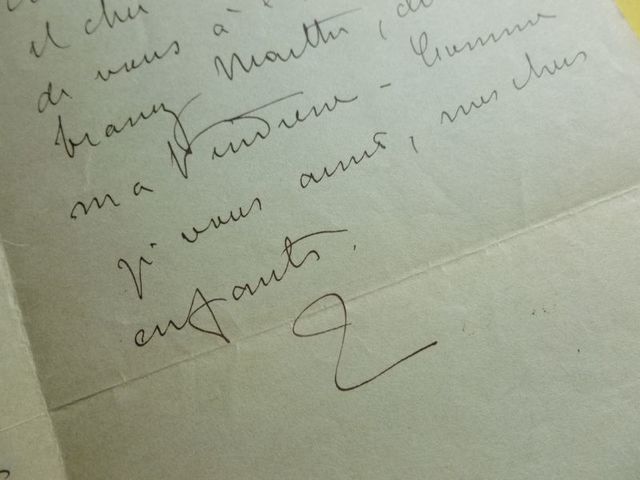 il cher
de vous à
Marthe, de
ma tendresse - Comme
je vous aime, mes chers
enfants.